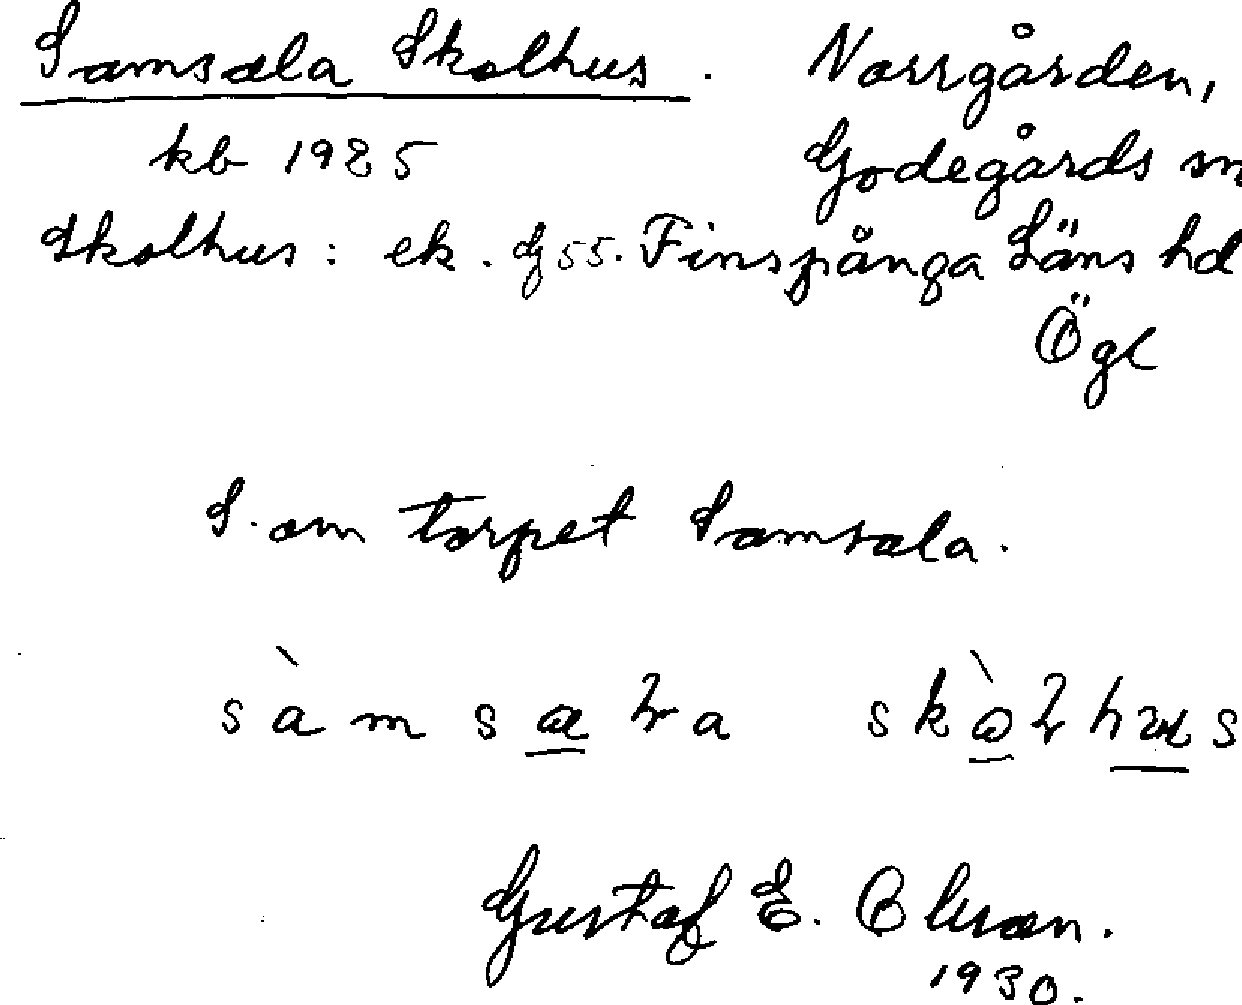 Samsala Skolhus. Norrgården,
kb 1925 Godegårds sn
Skolhus: ek. bl 55. Finspånga Läns hd
Ögl
S. om torpet Samsala.
Gustaf E. Olsson.
1930.